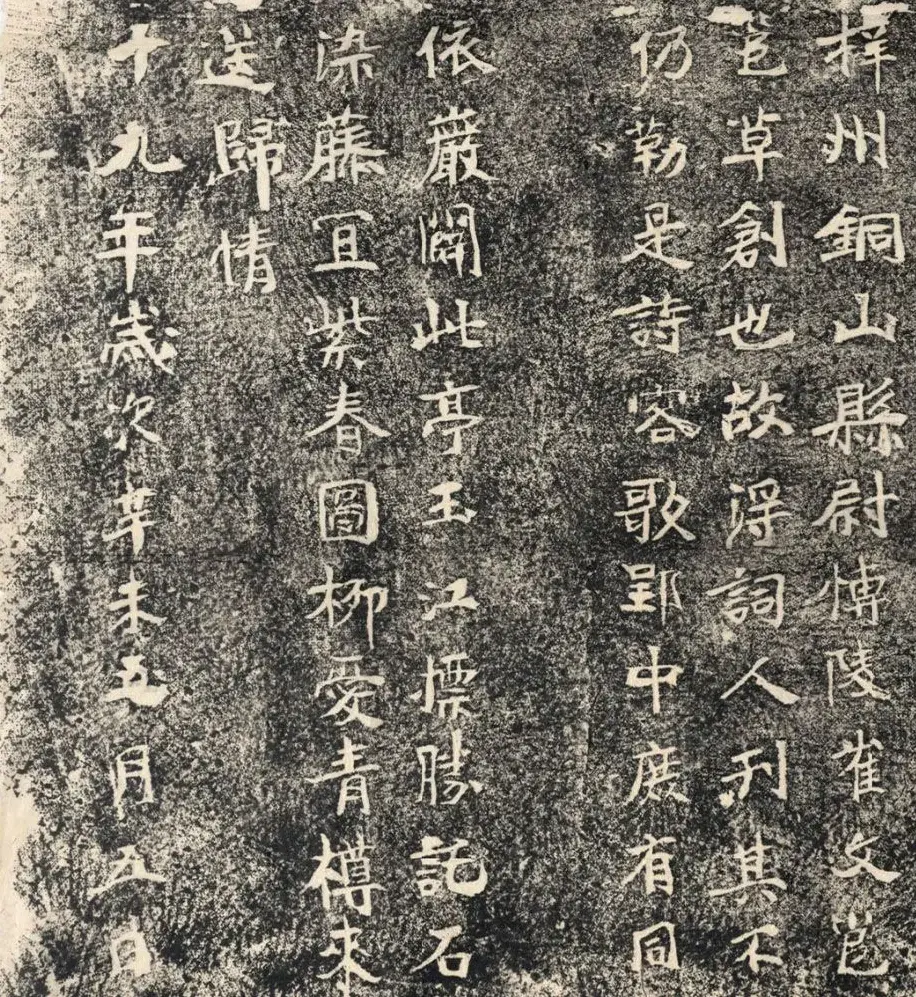 梓州銅山縣尉博陵崔文邕
邕草創也故浮詞人刋其不
仍勒是詩客歌郢中庶有同
依巖闢此亭玉江標勝託石
染藤冝紫春圖柳愛青樽來
送歸情
十九年歲次辛未五月五日